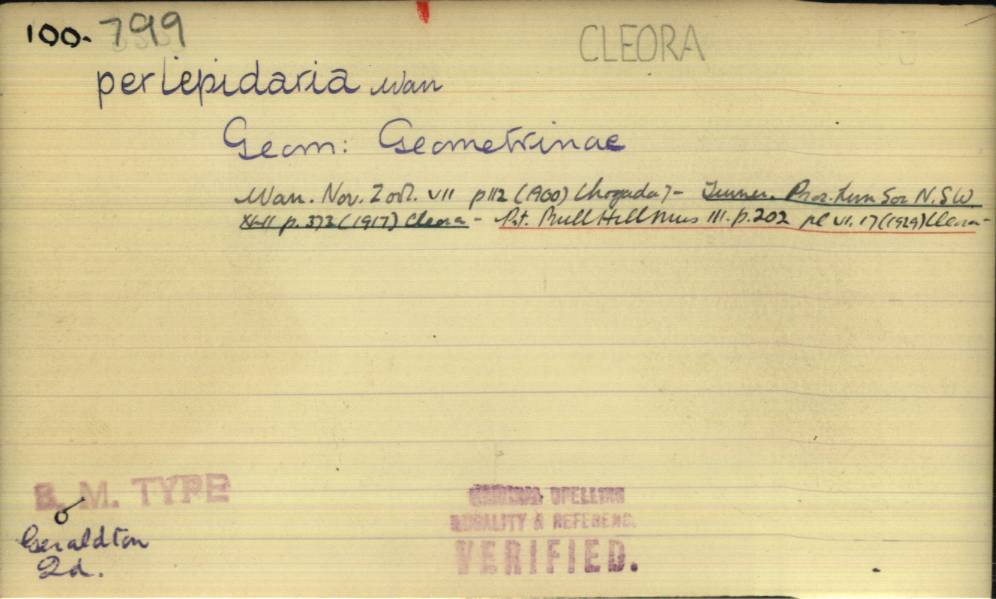 100-799
CLEORA
perlepidaria Warr
Geom: Geometrinae
Warr. Nov. Zool. VII p112 (1900) Chogada)- Turner. Proc. Linn Soc N.S.W
XLII p.372 (1917) Cleora - Prt. Bull Hill Mus III. p.202 pl VI. 17 (1929) Cleora-
B. M. TYPE
♂
Geraldton
Qd.
SPELLING
LOCALITY & REFERENC.
VERIFIED.